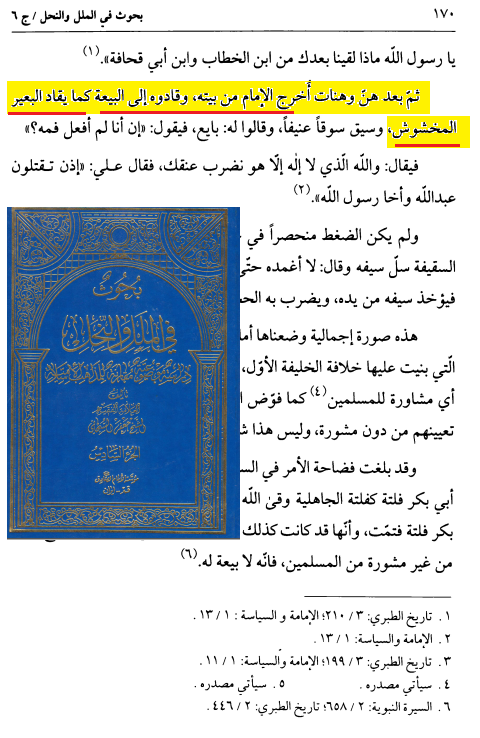 ١٧٠
بحوث في الملل والنحل / ج ٦
يا رسول اللّه ماذا لقينا بعدك من ابن الخطاب وابن أبي قحافة».(١)
ثمّ بعد هنّ وهنات أُخرج الإمام من بيته، وقادوه إلى البيعة كما يقاد البعير
المخشوش، وسيق سوقاً عنيفاً، وقالوا له: بايع، فيقول: «إن أنا لم أفعل فمه؟»
فيقال: واللّه الّذي لا إله إلّا هو نضرب عنقك، فقال عـلي: «إذن تـقتلون
عبداللّه وأخا رسول اللّه».(٢)
ولم يكن الضغط منحصراً في
السقيفة سلّ سيفه وقال: لا أغمده حتّى
فيؤخذ سيفه من يده، ويضرب به
هذه صورة إجمالية وضعناها
الّتي بنيت عليها خلافة الخليفة الأوّل،
أي مشاورة للمسلمين(٤) كما فوّض
تعيينهم من دون مشورة، وليس هذا
وقد بلغت فضاحة الأمر في
أبي بكر فلتة كفلتة الجاهلية وقىٰ اللّه
بكر فلتة فتمّت، وأنّها قد كانت كذلك
من غير مشورة من المسلمين، فانّه لا بيعة له.(٦)
بحوث
في الملل والنحل
تأليف
الجزء السادس
١ . تاريخ الطبري: ٣ / ٢١٠؛ الإمامة و السياسة : ١ / ١٣ .
٢ . الإمامة والسياسة: ١ / ١٣ .
٣ . تاريخ الطبري: ٣ / ١٩٩؛ الإمامة والسياسة: ١ / ١١ .
٤ . سيأتي مصدره . ٥ . سيأتي مصدره .
٦ . السيرة النبوية: ٢ / ٦٥٨؛ تاريخ الطبري: ٢ / ٤٤٦ .